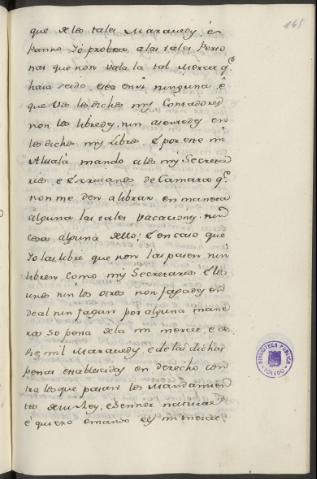 165
que de los tales Maravedy en
Persona Yo probeer a las tales Perso
nas que non vala la tal Merced q.e
haia seido, e sea en si ninguna, e
que Vos los dichos mis Contadores
non los libredy, nin asentedy en
los dichos my Libros. E por este mi
Alvalá mando a los my Secretar
rios e Escrivanos de Camara q.e
non me den a librar en manera
alguna las tales vacaciony, nin
cosa alguna dello, E en caso que
Yo las libre que non las pasen nin
libren como my Secretarios. E los
unos nin los otros non fagady en
de al nin fagan por alguna mane
ra so pena de la mi merced, e de
mil Maravedy, e de las dichas
penas establecidas en derecho con
tra los que pasan los Mandamien
tos de su Rey, e Sennor natural
é quiero e mando e es mi merced
BIBLIOTECA PUBLICA
TOLEDO